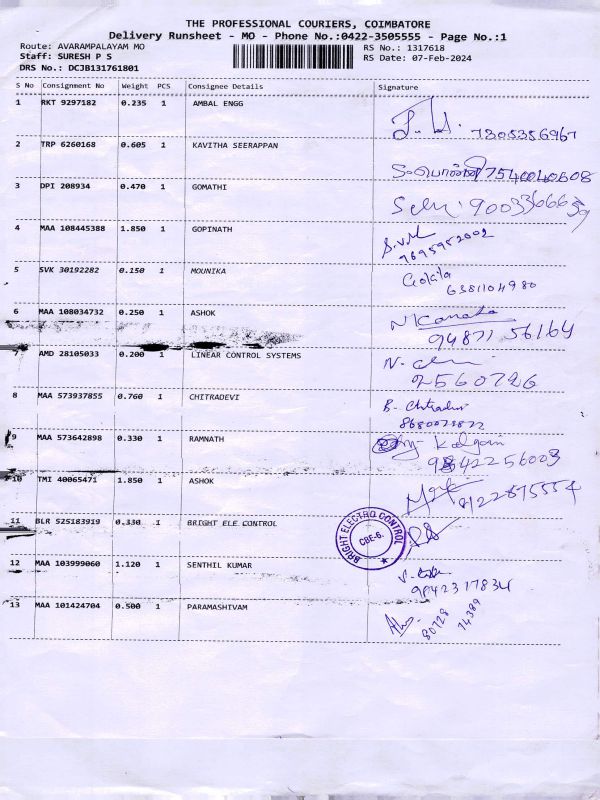 THE PROFESSIONAL COURIERS, COIMBATORE
Delivery Runsheet - MO - Phone No.:0422-3505555 - Page No.:1
Route: AVARAMPALAYAM MO RS No.: 1317618
Staff: SURESH P S RS Date: 07-Feb-2024
DRS No.: DCJB131761801
S No Consignment No Weight PCS Consignee Details Signature
1 RKT 9297182 0.235 1 AMBAL ENGG
7305356967
2 TRP 6260168 0.605 1 KAVITHA SEERAPPAN
7540040608
3 DPI 208934 0.470 1 GOMATHI
4 MAA 108445388 1.850 1 GOPINATH
7695952002
5 SVK 30192282 0.150 1 MOUNIKA
Gokila
6381104980
6 MAA 108034732 0.250 1 ASHOK
N Kanaka
94871 56164
7 AMD 28105033 0.200 1 LINEAR CONTROL SYSTEMS
2560726
8 MAA 573937855 0.760 1 CHITRADEVI
B. Chitradevi
9 MAA 573642898 0.330 1 RAMNATH
9842256003
10 TMI 40065471 1.850 1 ASHOK
11 BLR 525183919 0.330 1 BRIGHT ELE CONTROL
BRIGHT ELECTRO CONTROL
CBE-6.
12 MAA 103999060 1.120 1 SENTHIL KUMAR
9842317834
13 MAA 101424704 0.500 1 PARAMASHIVAM
80728
14389